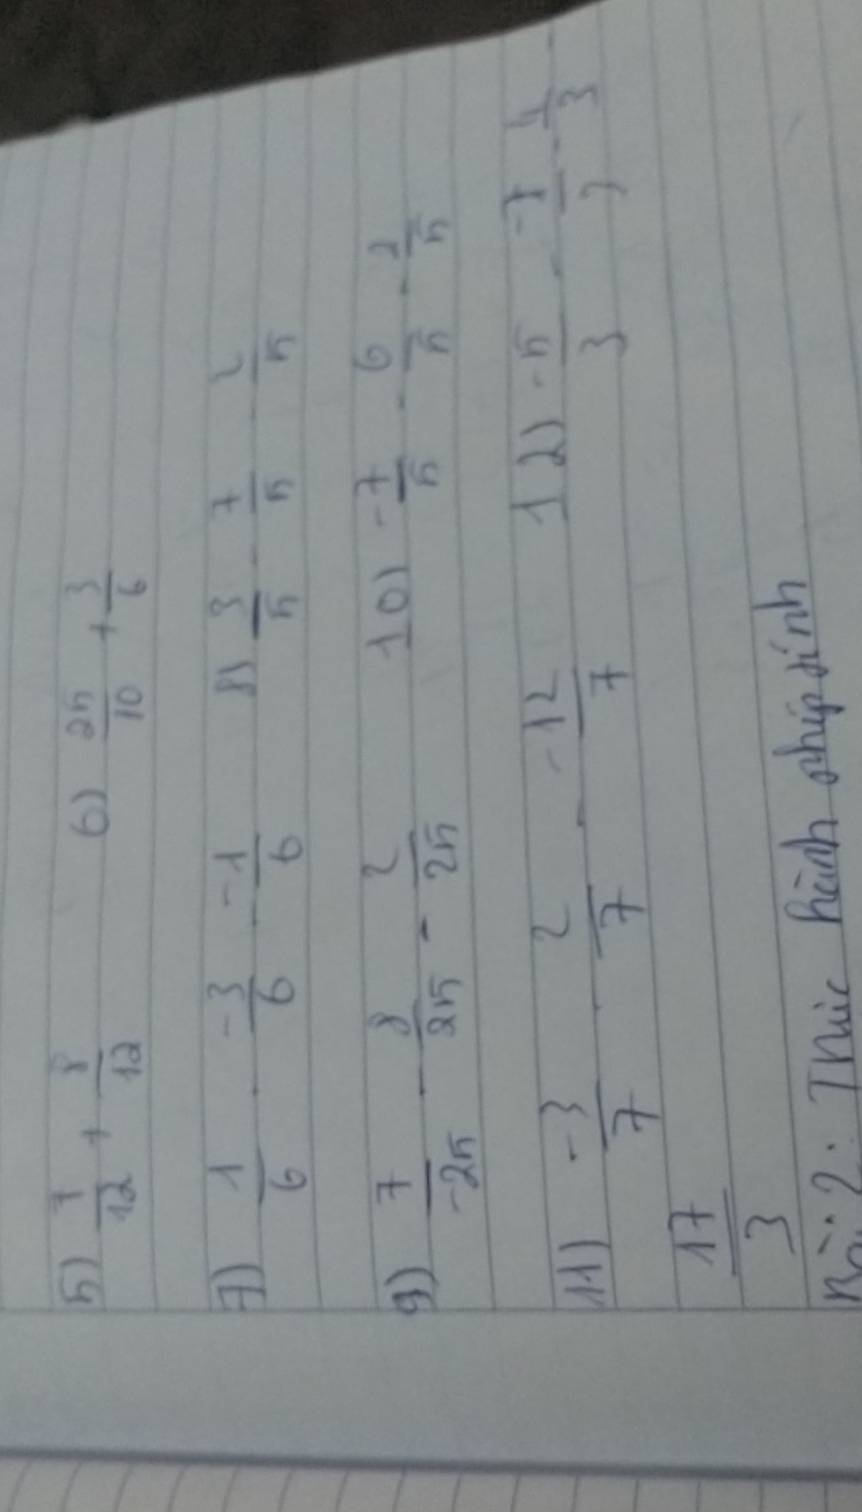 5) 7/12 + 8/12 6) 25/10 + 3/6
7) 1/6 - -3/6 - -1/6 8) 3/5 - 7/5 - 2/5
9) 7/-25 - 8/25 - 2/25 10) -7/5 - 6/5 - 2/5
11) -3/7 - 2/7 - -12/7 12) -5/3 - -7/2 - 4/3 -
17/3
Bài 2: Thực hành phép tính